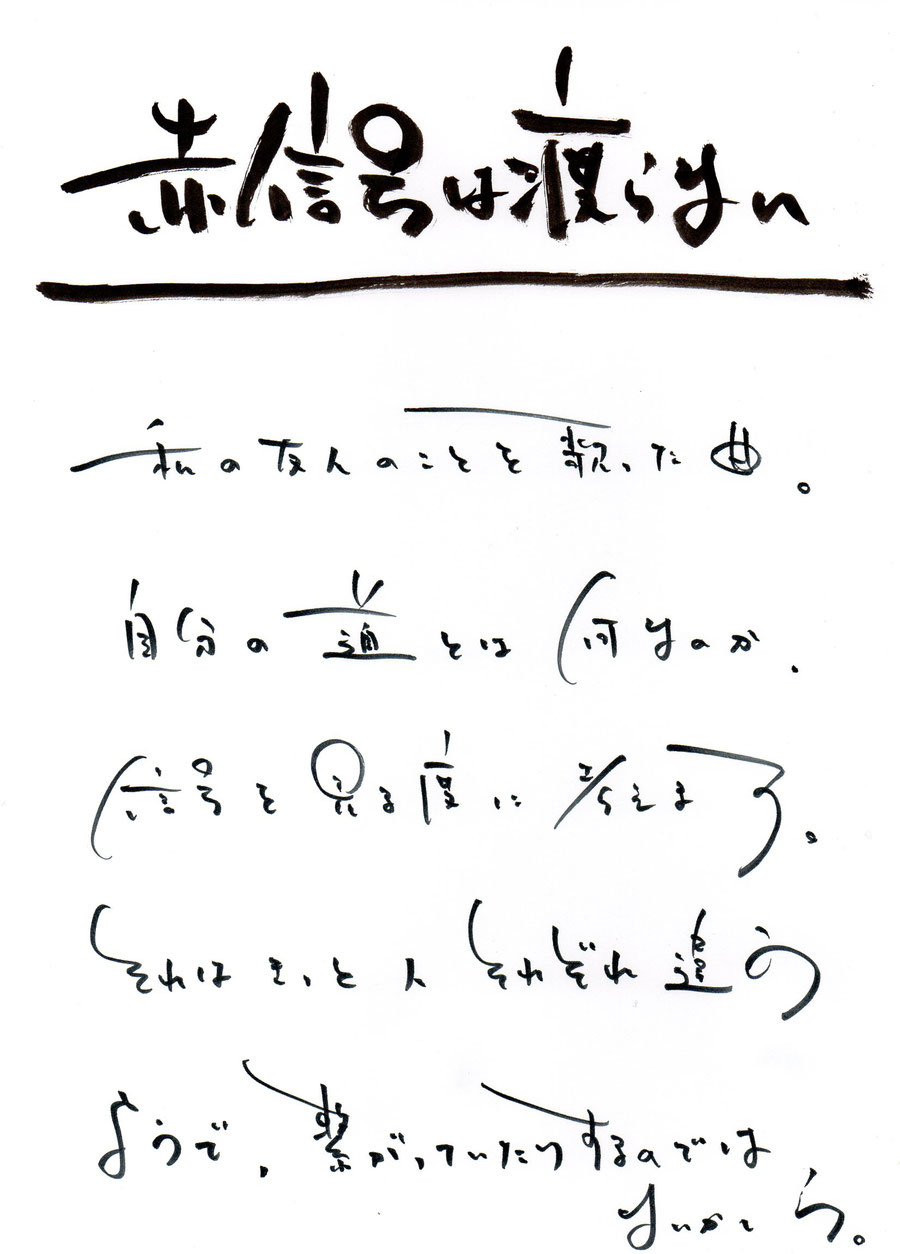 赤信号は渡らない
私の友人のことを歌った曲。
自分の道とは何なのか、
信号を見る度に考えます。
それはきっと人それぞれ違う
ようで、繋がっていたりするのでは
ないかしら。